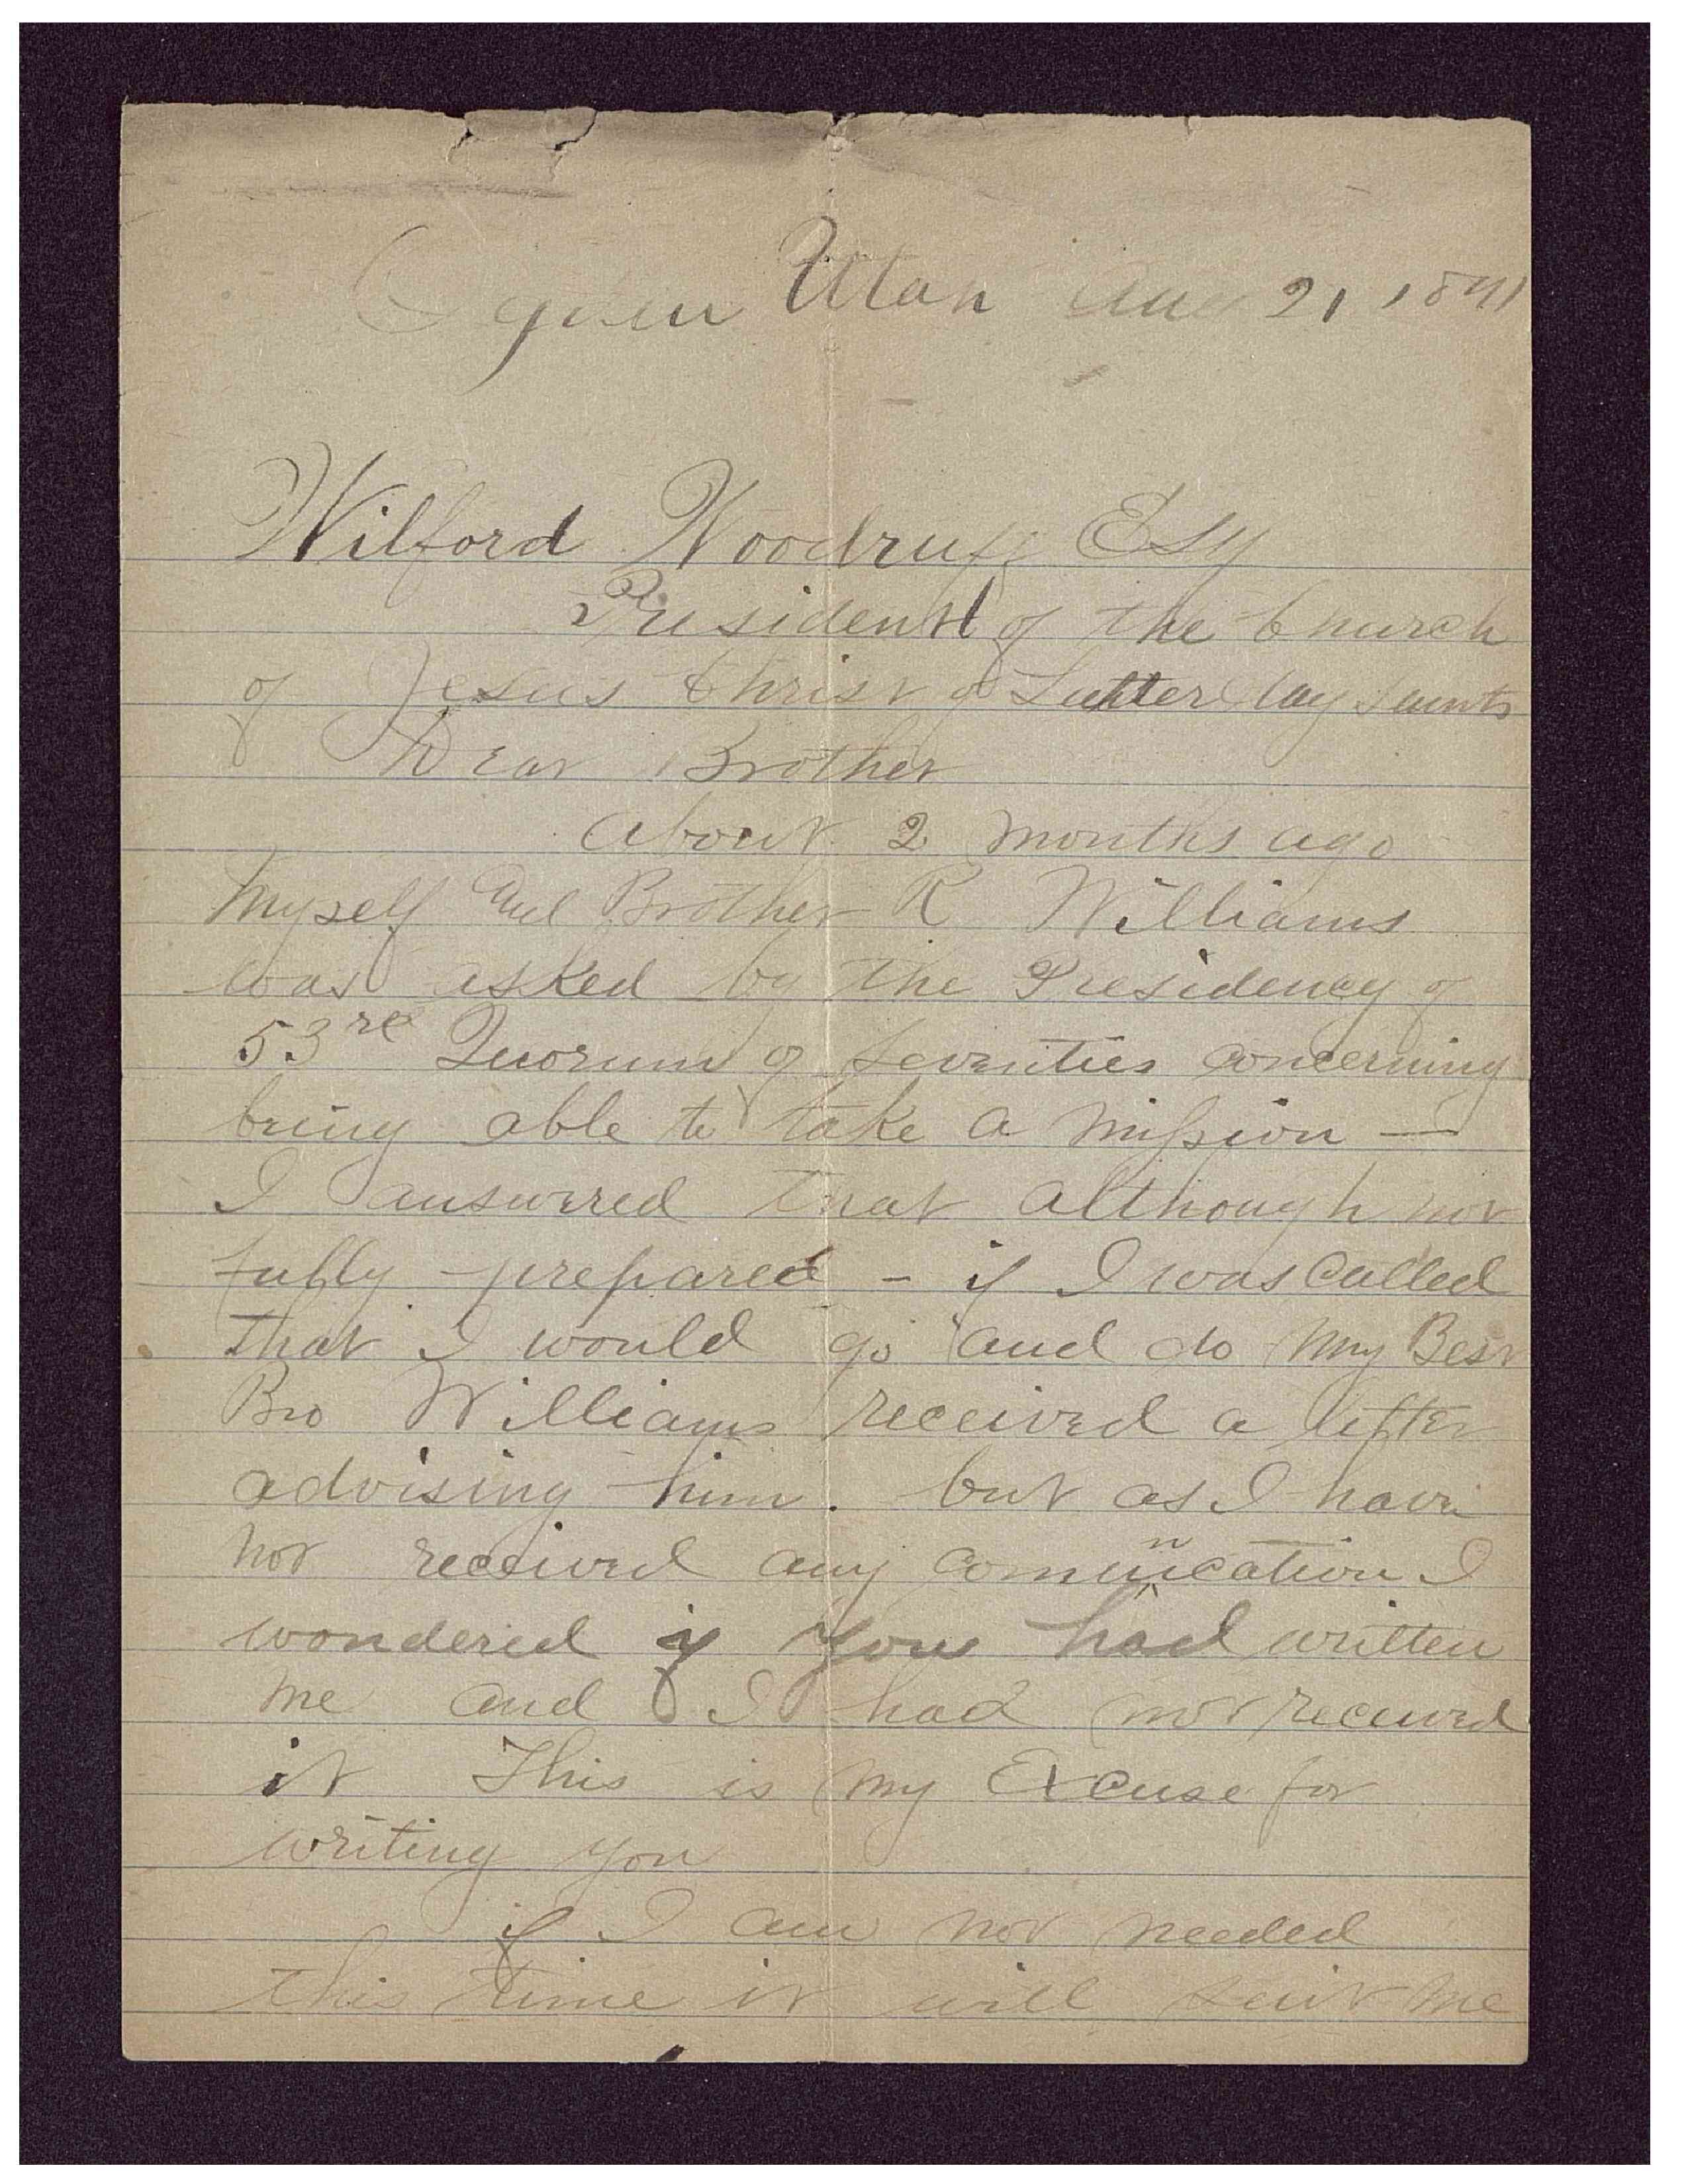 Ogden Utah Aug 21, 1891
Wilford Woodruff Esq
President of the Church
of Jesus Christ of Latter day Saints
Dear Brother
About 2 months ago
myself and Brother R Williams
was asked by the Presidency of
53rd Quorum of Seventies concerning
being able to take a mission —
I answered that although not
fully prepared – if I was called
that I would go and do my Best
Bro Williams received a letter
advising him. but as I have
not received any comunication I
wondered if you had written
me and I had not received
it This is my Excuse for
writing you
if I am not needed
this time it will suit me